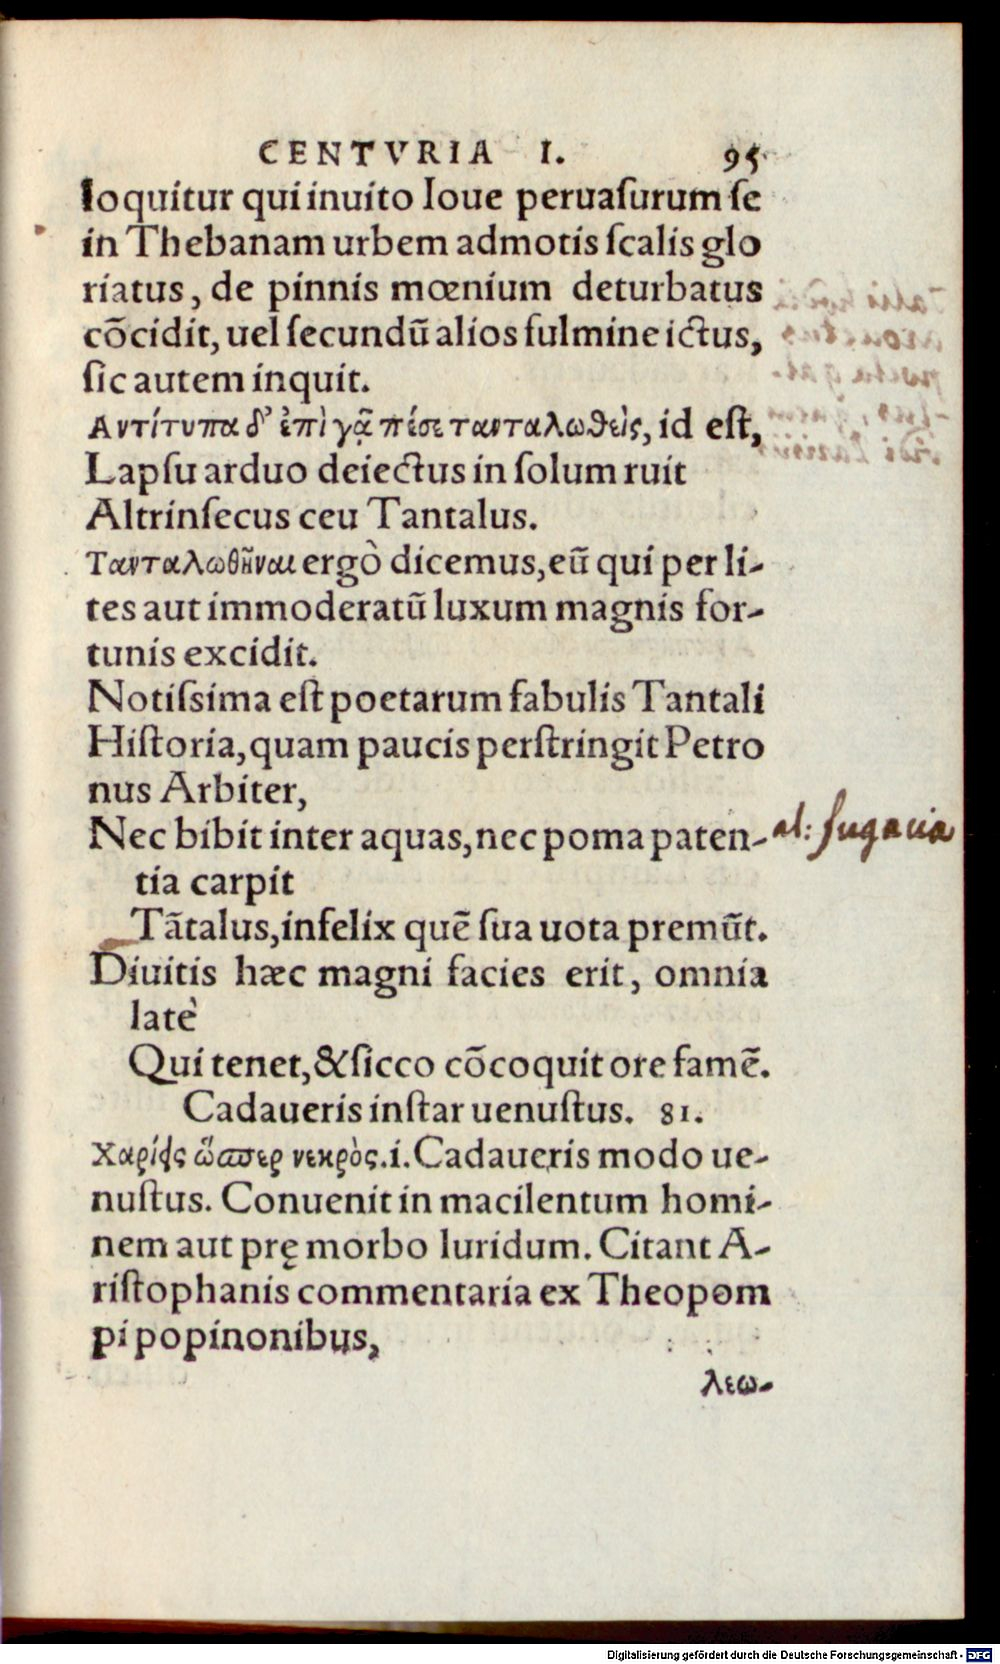 CENTVRIA I. 95
loquitur qui inuito Ioue peruaſurum ſe
in Thebanam urbem admotis ſcalis glo
riatus, de pinnis mœnium deturbatus
cõcidit, uel ſecundũ alios fulmine ictus,
ſic autem inquit.
Αντίτυπα δ’ ἐπὶ γᾷ πέσε τανταλωθεὶς, id eſt,
Lapſu arduo deiectus in ſolum ruit
Altrinſecus ceu Tantalus.
Τανταλωθῆναι ergò dicemus, eũ qui per li-
tes aut immoderatũ luxum magnis for-
tunis excidit.
Notiſsima eſt poetarum fabulis Tantali
Hiſtoria, quam paucis perſtringit Petro
nus Arbiter,
Nec bibit inter aquas, nec poma paten- al: fugacia
tia carpit
Tãtalus, infelix quẽ ſua uota premũt.
Diuitis hæc magni facies erit, omnia
latè
Qui tenet, & ſicco cõcoquit ore famẽ.
Cadaueris inſtar uenuſtus. 81.
Χαρίεις ὥσπερ νεκρὸς. i. Cadaueris modo ue-
nuſtus. Conuenit in macilentum homi-
nem aut prę morbo luridum. Citant A-
riſtophanis commentaria ex Theopom
pi popinonibus,
λεω-
Digitalisierung gefördert durch die Deutsche Forschungsgemeinschaft - DFG